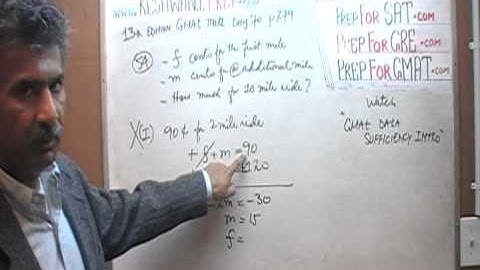 13th EDITION GMAT MATH Day 70 p279
59
- f cents for the first mile
- m cents for @ additional mile
- How much for 10 mile ride?
X(I) 90 ¢ for 2 mile ride
+ f + m = 90
120
m = -30
m = 15
f =
PREPFORSAT.com
PREPFORGRE.com
PREPFORGMAT.com
Watch
"GMAT DATA
SUFFICIENCY INTRO"